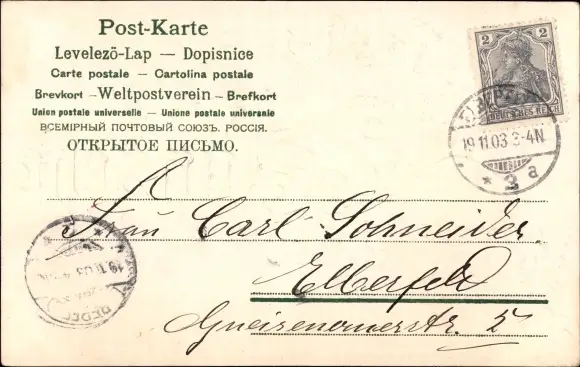 Post-Karte
Levelező-Lap — Dopisnice
Carte postale — Cartolina postale
Brevkort - Weltpostverein - Brefkort
Union postale universelle — Unione postale universale
ВСЕМІРНЫЙ ПОЧТОВЫЙ СОЮЗЪ. РОССІЯ.
ОТКРЫТОЕ ПИСЬМО.
2 2
DEUTSCHES REICH
19.11.03 3-4N
* 2 a
Frau Carl Schneider.
Elberfeld
Gneisenauerstr. 5
19.11.03